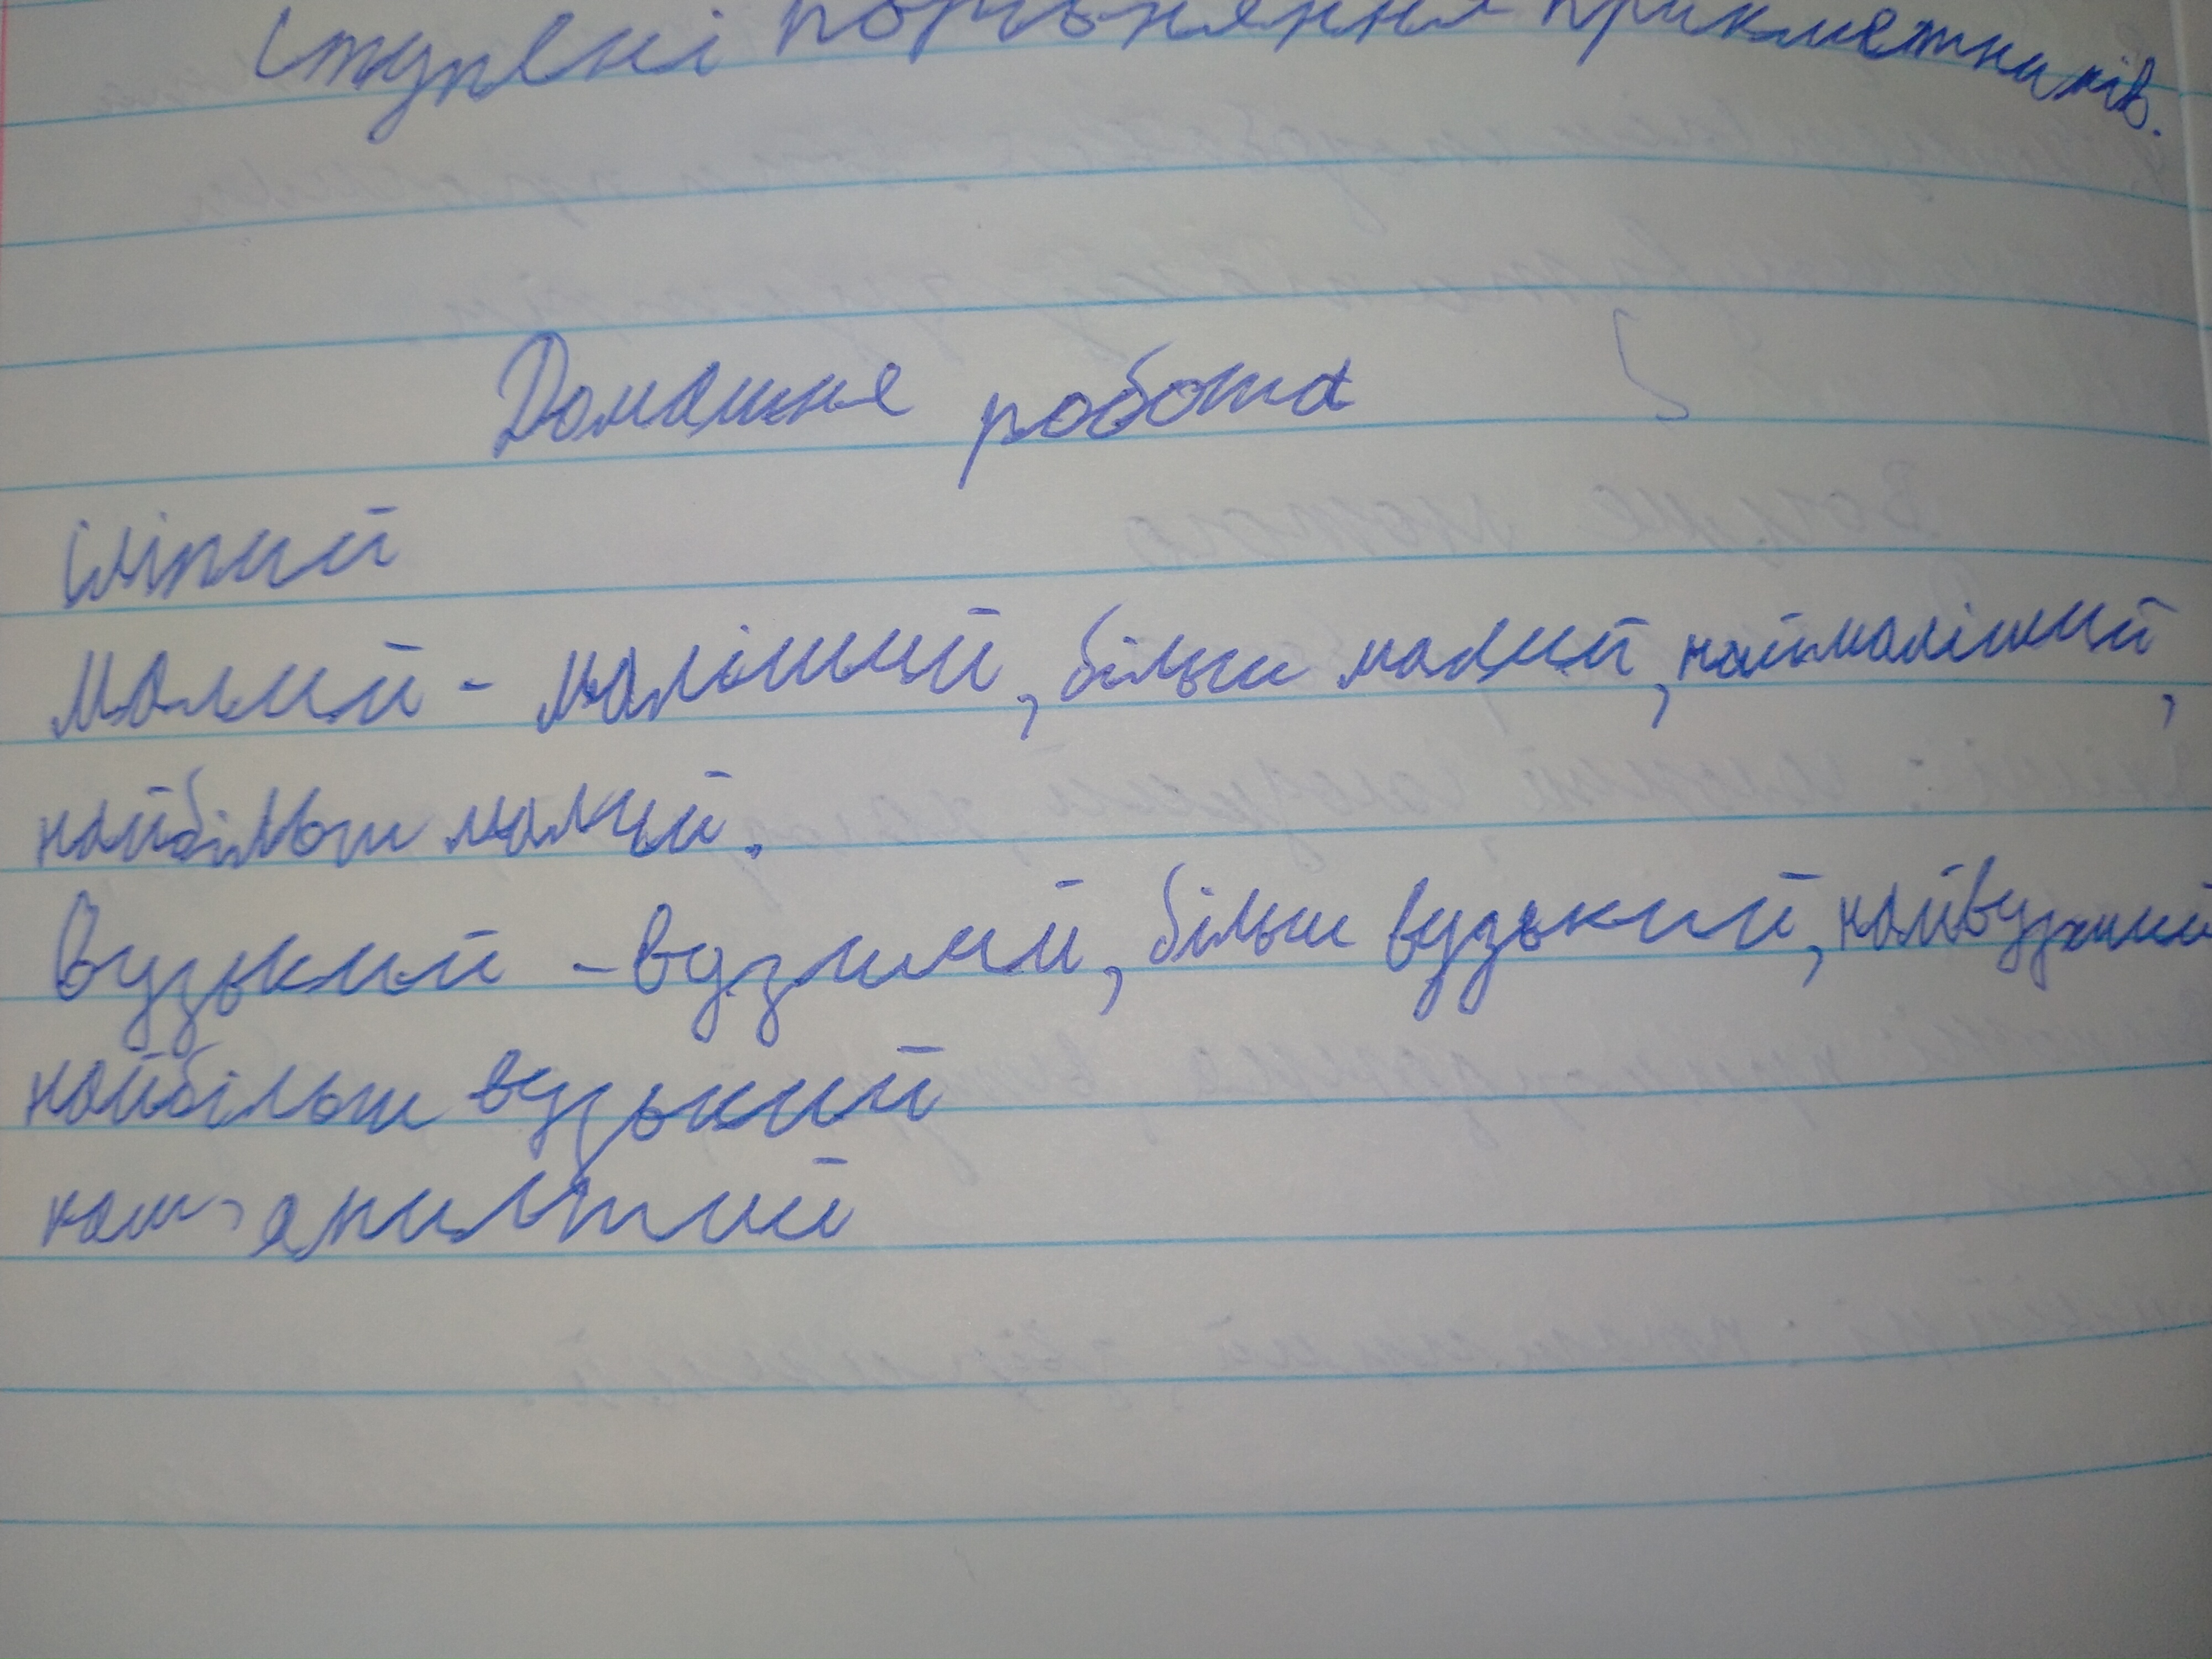 Ступені порівняння прикметників.
Домашня робота
Сліпий
Малий - малішій, більш малий, наймаліший,
найбільш малий.
Вузький - вузчий, більш вузький, найвузчий
найбільш вузький
кам'янистий